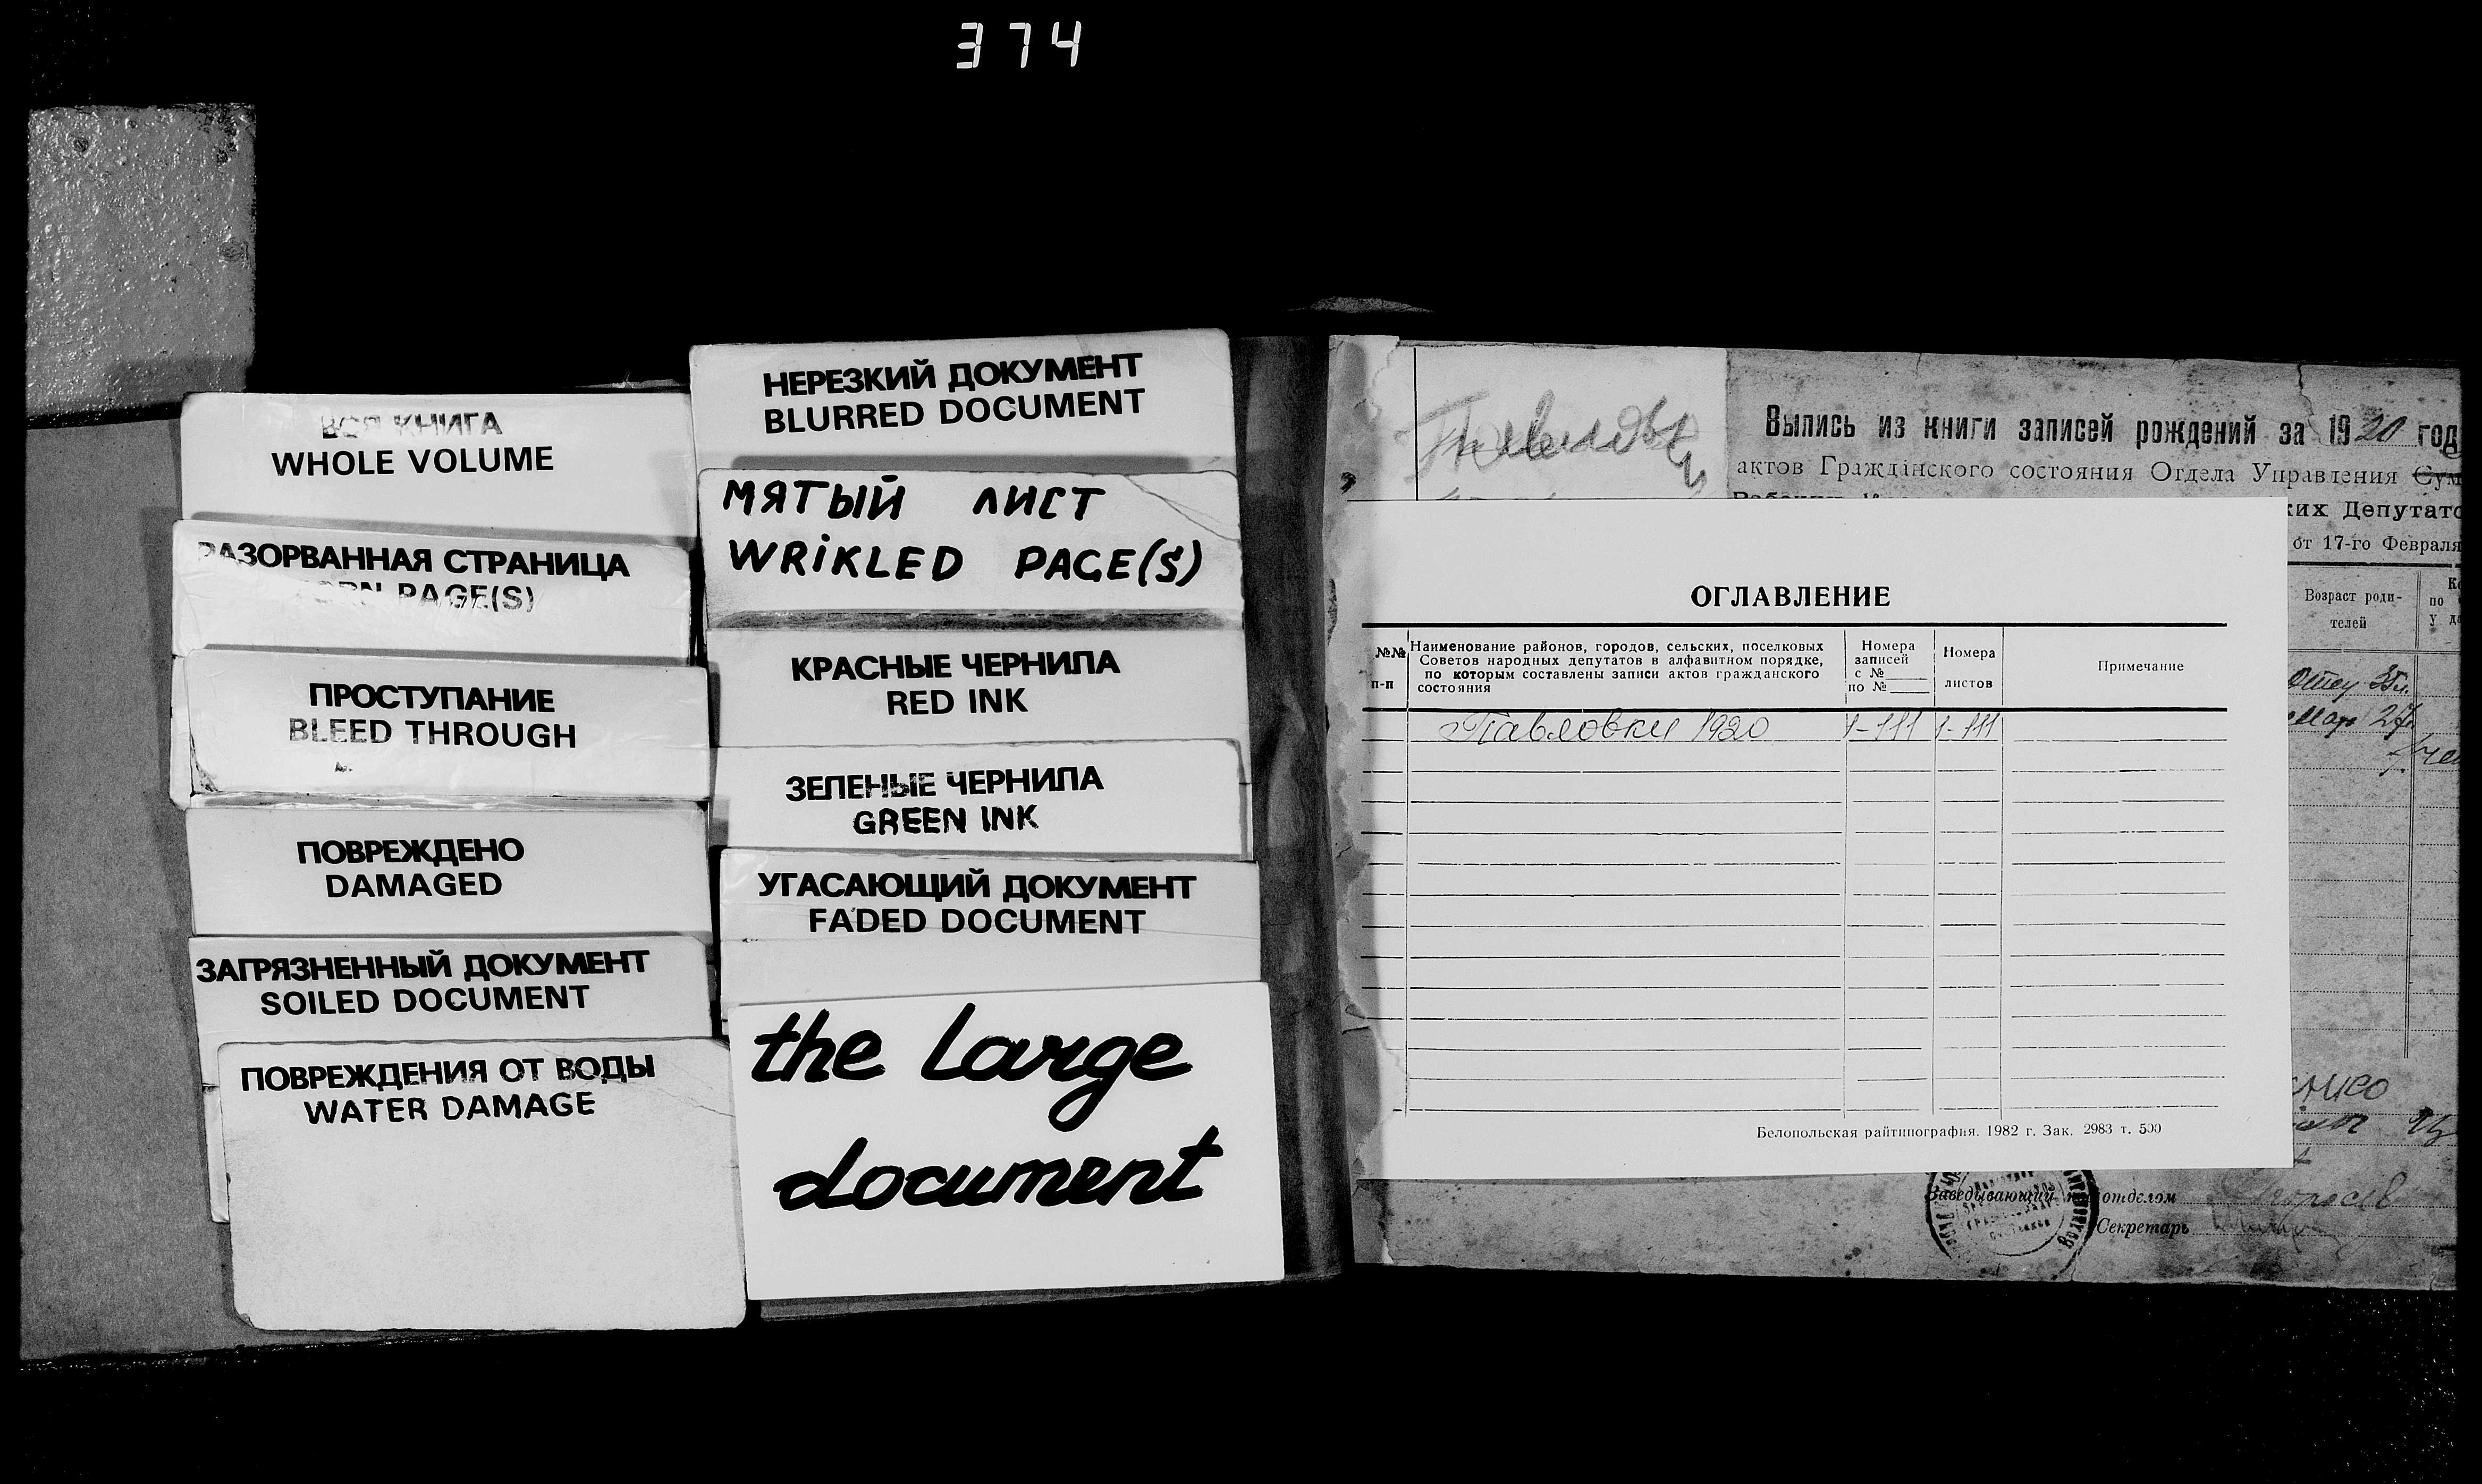 374
ВСЯ КНИГА
WHOLE VOLUME
РАЗОРВАННАЯ СТРАНИЦА
TORN PAGE(S)
ПРОСТУПАНИЕ
BLEED THROUGH
ПОВРЕЖДЕНО
DAMAGED
ЗАГРЯЗНЕННЫЙ ДОКУМЕНТ
SOILED DOCUMENT
ПОВРЕЖДЕНИЯ ОТ ВОДЫ
WATER DAMAGE
НЕРЕЗКИЙ ДОКУМЕНТ
BLURRED DOCUMENT
МЯТЫЙ ЛИСТ
WRIKLED PAGE(S)
КРАСНЫЕ ЧЕРНИЛА
RED INK
ЗЕЛЕНЫЕ ЧЕРНИЛА
GREEN INK
УГАСАЮЩИЙ ДОКУМЕНТ
FADED DOCUMENT
the large
document
Выпись из книги записей рождений за 1920 год
актов Гражданского состояния Отдела Управления Сум
ких Депутато
от 17-го Февраля
Возраст роди-
телей
по
у
Отцу
ОГЛАВЛЕНИЕ
№№ п-п
Наименование районов, городов, сельских, поселковых
Советов народных депутатов в алфавитном порядке,
по которым составлены записи актов гражданского
состояния
Номера
записей
с №
по №
Номера
листов
Примечание
Павловки 1920 1-111 1-111
Белопольская райтипография. 1982 г. Зак. 2983 т. 500
Заведывающий отделом
Секретарь